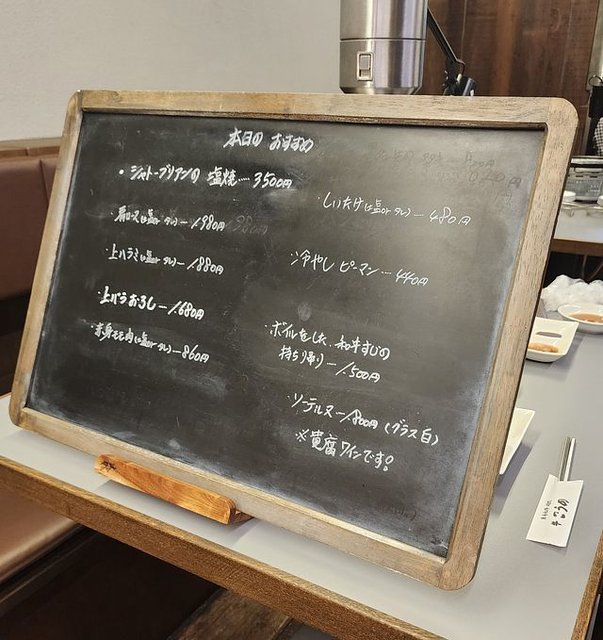 本日の おすすめ
・シャトーブリアンの 塩焼…3500円
肩ロース(塩or タレ)－1.980円
上ハラミ(塩or タレ)－1.880円
上バラおろし－1.680円
赤身モモ肉(塩or タレ)－860円
・しいたけ(塩or タレ)－480円
冷やし ピーマン…440円
・ボイルをした、和牛すじの
持ち帰り－1.500円
・ソーテルヌ－1.800円(グラス白)
※貴腐ワインです!